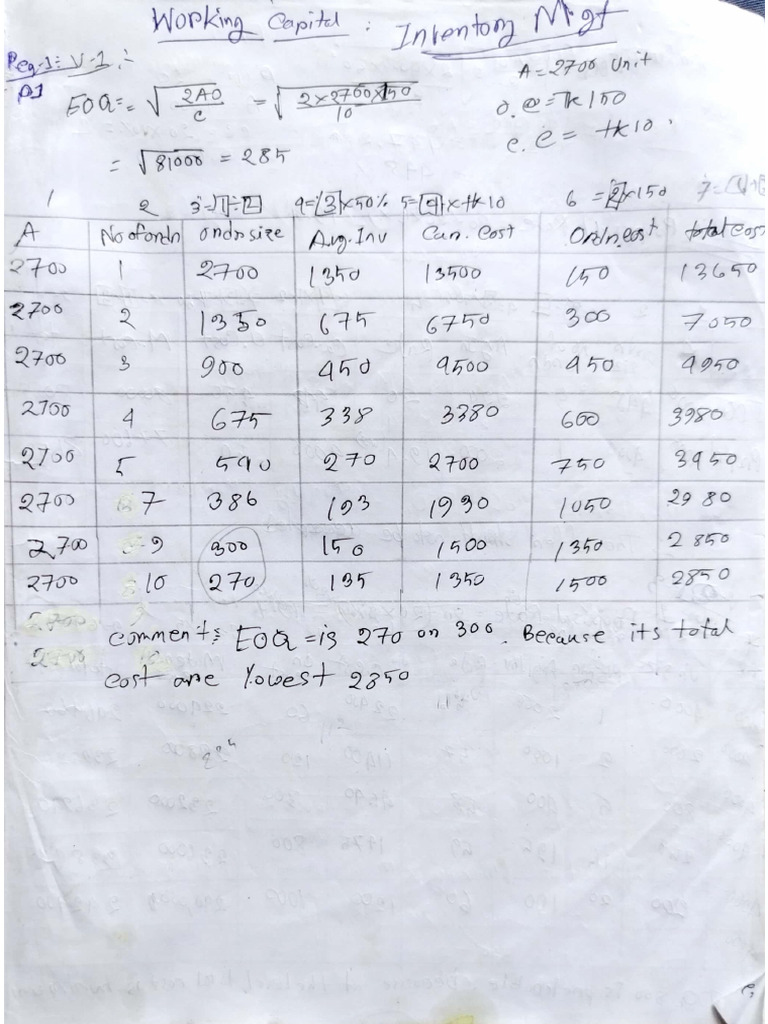 Working Capital : Inventory Mgt
Req-1: V-1 :-
P1
A = 2700 Unit
EOQ = √2AO/C = √2×2700×150/10
O.C = Tk 150
C.C = tk 10
= √81000 = 285
1 2 3=1÷2 4=3×50% 5=4×tk10 6=2×150
A No of order order size Avg. Inv Carr. Cost Order. cost total cost
2700 1 2700 1350 13500 150 13650
2700 2 1350 675 6750 300 7050
2700 3 900 450 4500 450 4950
2700 4 675 338 3380 600 3980
2700 5 540 270 2700 750 3450
2700 7 386 193 1930 1050 2980
2700 9 300 150 1500 1350 2850
2700 10 270 135 1350 1500 2850
2700
Comment: EOQ = is 270 or 300. Because its total
cost are lowest 2850